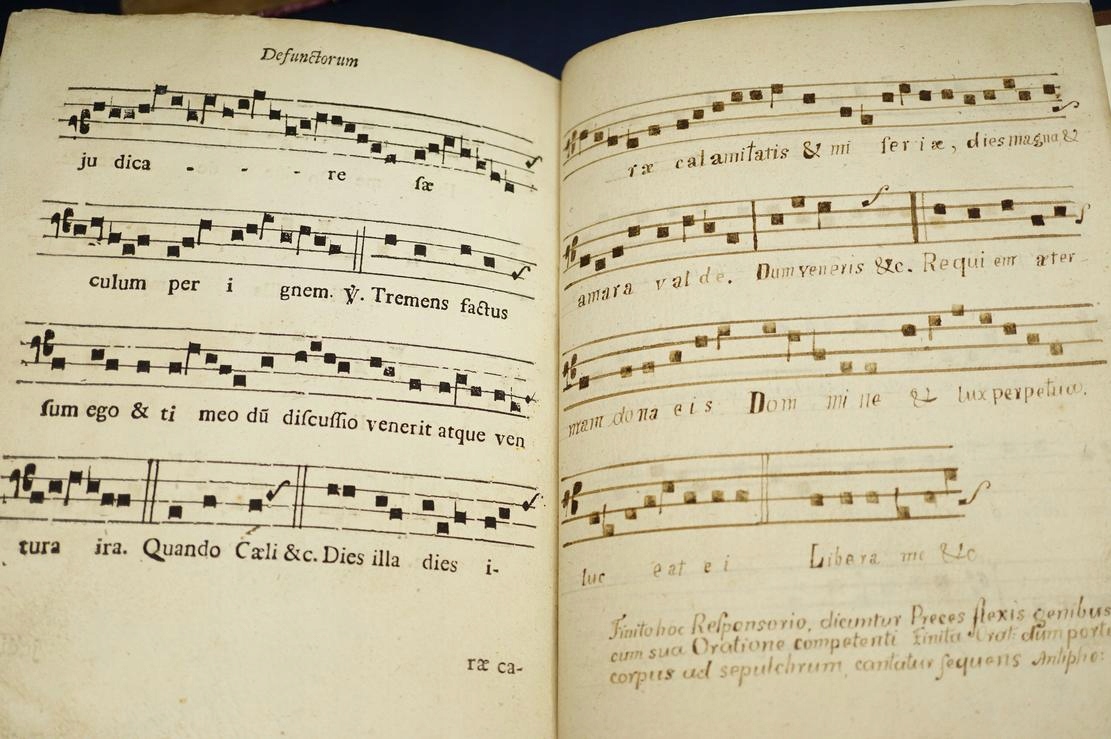 Defunctorum
ju dica - - - re ſæ
culum per i gnem. ℣. Tremens factus
ſum ego & ti meo dū diſcuſſio venerit atque ven
tura ira. Quando Cæli &c. Dies illa dies i-
ræ ca-
ræ calamitatis & mi ſeriæ, dies magna &
amara valde. Dum veneris &c. Requiem æter
nam dona eis Dom mi ne & lux perpetua,
luc eat ei Libera me &c
Finito hoc Reſponsorio, dicuntur Preces flexis genibus
cum sua Oratione competenti Finita Orat: dum portt
corpus ad sepulchrum, cantatur ſequens Antipho: